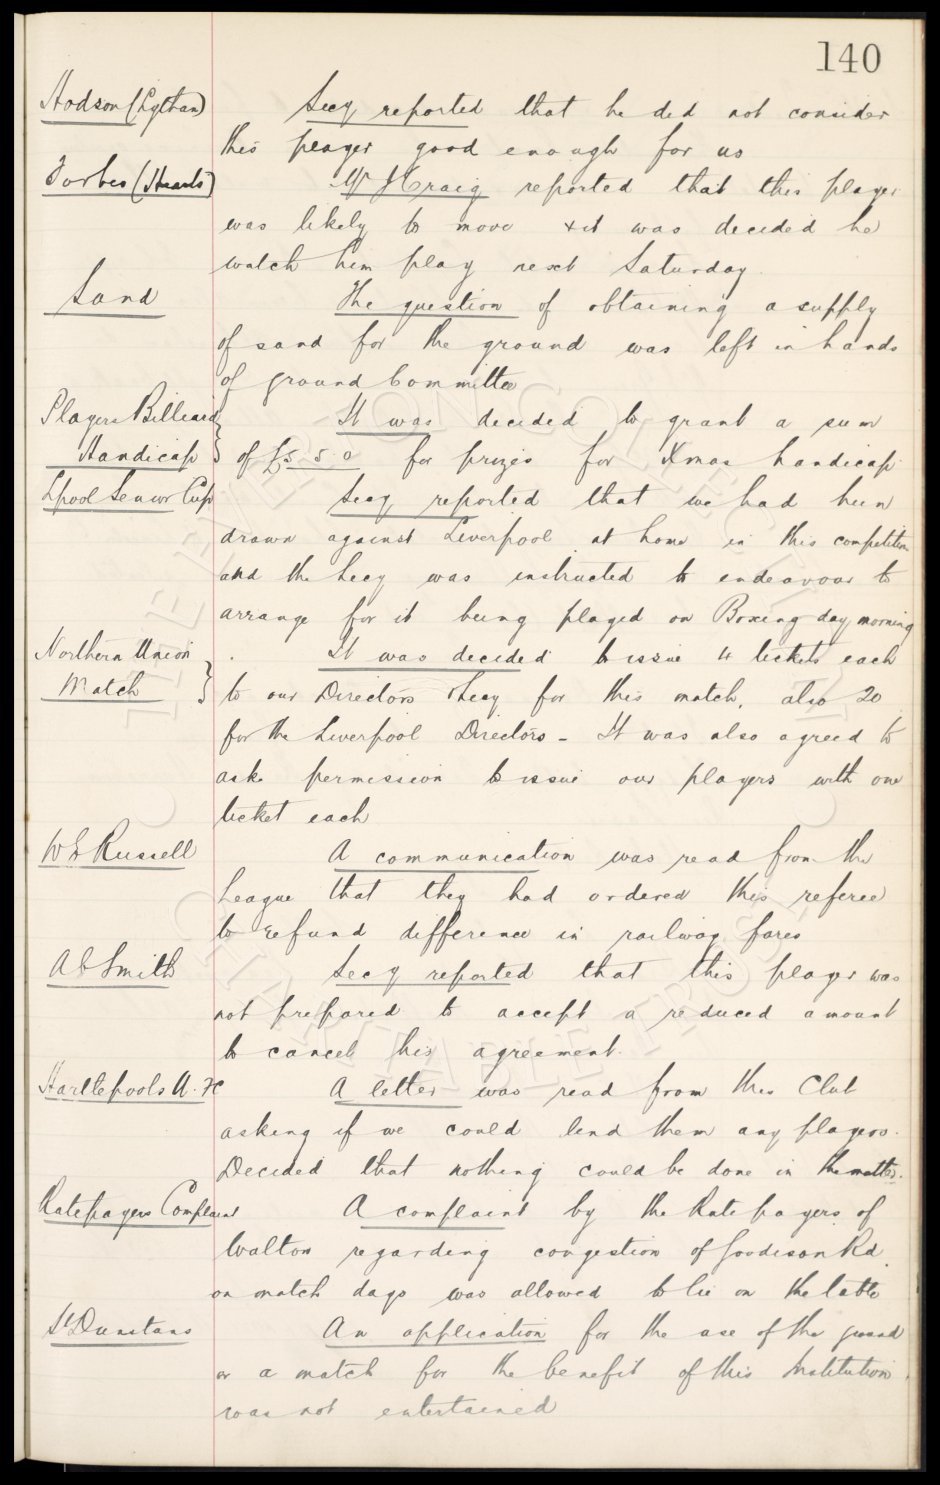 140
Hodson (Lytham) Secy reported that he did not consider
this player good enough for us
Forbes (Hearts) Mr McCraig reported that this player
was likely to move & it was decided he
watch him play next Saturday.
Sand The question of obtaining a supply
of sand for the ground was left in hands
of ground Committee
Players Billiard It was decided to grant a sum
Handicap of £5 5 0 for prizes for Xmas handicap.
Lpool Senior Cup Secy reported that we had been
drawn against Liverpool at home in this competition
and the Secy was instructed to endeavour to
arrange for it being played on Boxing day morning
Northern Union It was decided to issue 4 tickets each
Match to our Directors & Secy for this match, also 20
for the Liverpool Directors - It was also agreed to
ask permission to issue our players with one
ticket each
W E Russell A communication was read from the
League that they had ordered this referee
to refund difference in railway fares
A E Smith Secy reported that this player was
not prepared to accept a reduced amount
to cancel his agreement.
Hartlepools U. FC A letter was read from this Club
asking if we could lend them any players.
Decided that nothing could be done in the matter.
Ratepayers Complaint A complaint by the Ratepayers of
Walton regarding congestion of Goodison Rd.
on match days was allowed to lie on the table
St Dunstans An application for the use of the ground
or a match for the benefit of this Institution
was not entertained